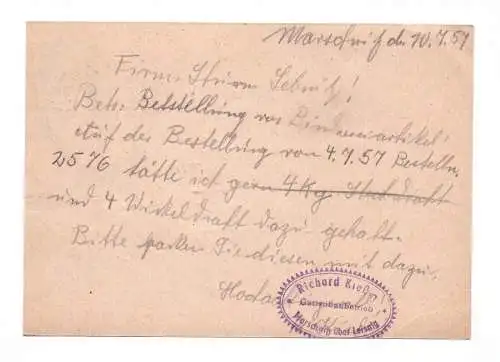 Marschwitz den 10.7.57
Firma Sturm Sebnitz!
Betr. Betstellung von Bindereiartikel!
Auf der Bestellung vom 4.7.57 Bestelln.
2576 hätte ich gern 4 Kg Steckdraft
und 4 Wickeldraft dazu gehabt.
Bitte packen Sie diesen mit dazu.
Richard Kieß
Gartenbaubetrieb
Marschwitz über Leisnig